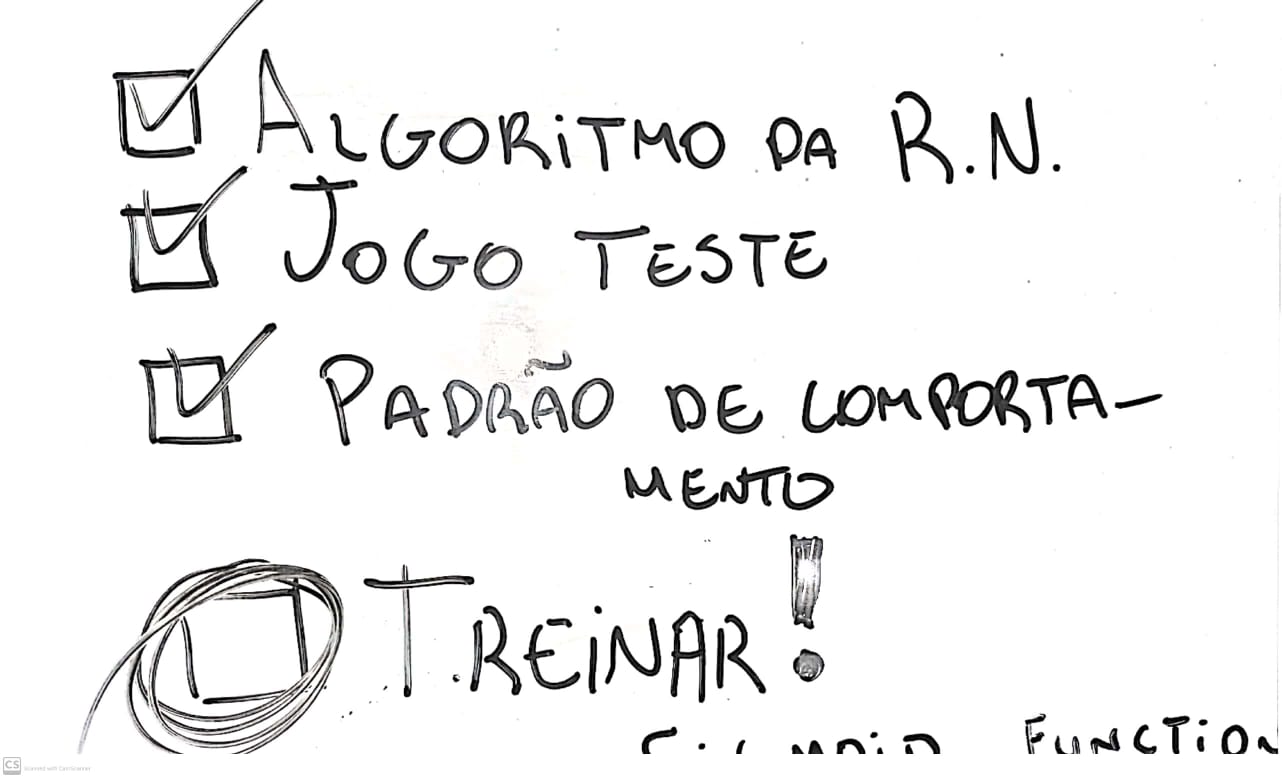 ALGORITMO DA R.N.
JOGO TESTE
PADRÃO DE COMPORTA-
MENTO
TREINAR!
SIGMOID FUNCTION
CS Scanned with CamScanner